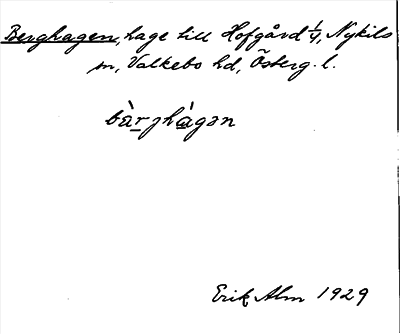 Berghagen, hage till Hofgård 1/4, Nykils
sn, Valkebo hd, Österg. l.
bàrghàgən
Erik Alm 1929